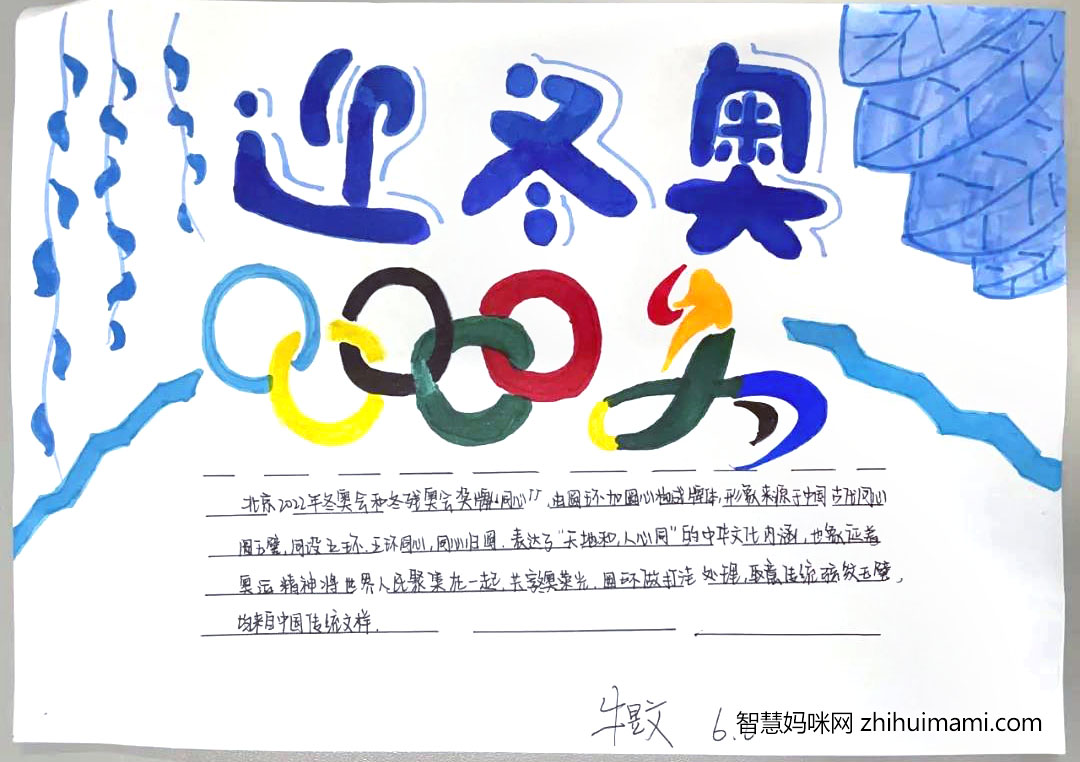 迎冬奥
北京2022年冬奥会和冬残奥会奖牌“同心”,由圆环加圆心构成牌体,形象来源于中国古代同心
圆玉璧,同设五环.五环同心,同心归圆.表达了“天地和,人心同”的中华文化内涵,也象征着
奥运精神将世界人民聚集在一起,共享奥荣光.圆环做打洼处理,取意传统弦纹玉璧,
均来自中国传统文样.
牛昱文 6.
智慧妈咪网 zhihuimami.com